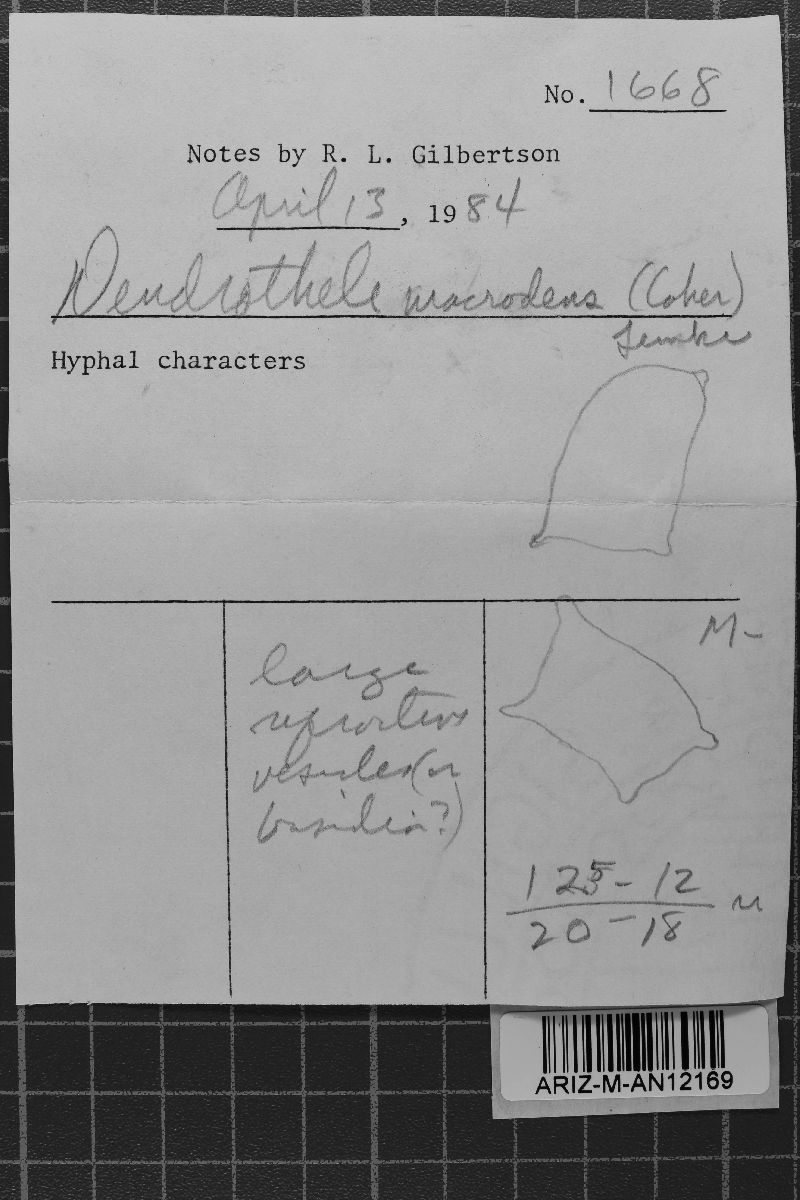 No. 1668
Notes by R. L. Gilbertson
April 13, 1984
Dendrothele macrodens (Coker)
Lemke
Hyphal characters
M-
large
refractive
vesicles (or
basidia?)
125 - 12
20 - 18 u
ARIZ-M-AN12169